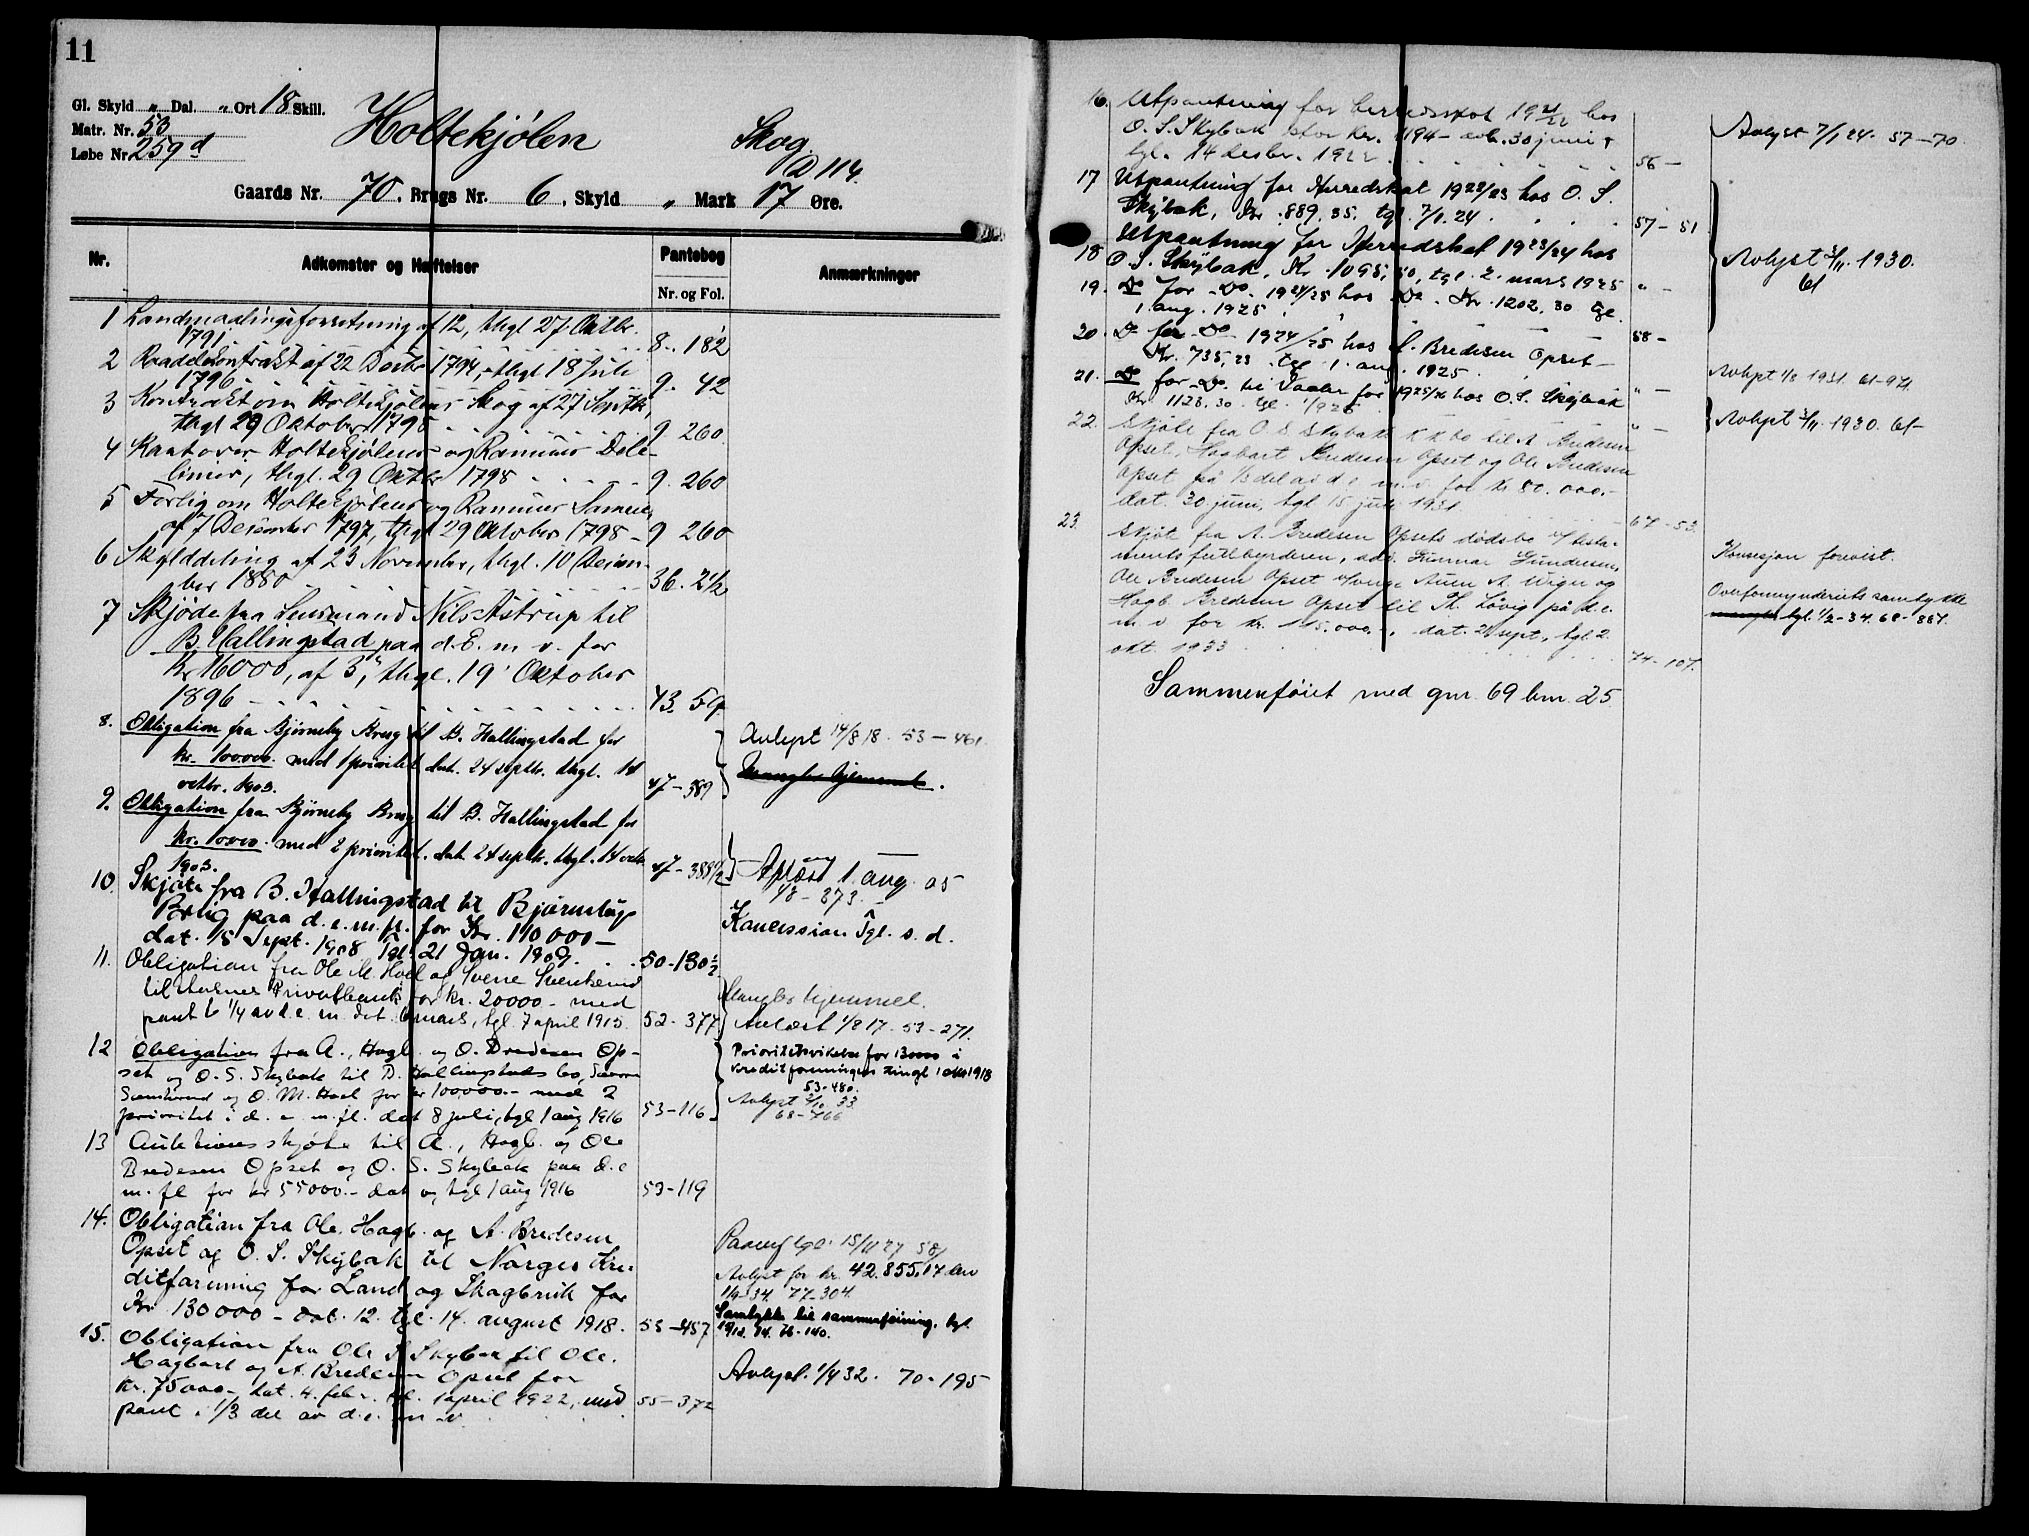 11
Gl. Skyld „ Dal. „ Ort 18 Skill.
Matr. Nr. 53
Løbe Nr. 259 d
Holtekjølen Skog.
D 114.
Gaards Nr. 70. Brugs Nr. 6, Skyld „ Mark 17 Øre.
Nr. Adkomster og Hæftelser Pantebog Anmærkninger
Nr. og Fol.
1 Landmaalingsforretning af 12, thgl 27 Oktbr.
1791 8. 182
2 Kontrakt af 22 Decbr 1794, thgl 18 Juli
1796 9. 42
3 Kontrakt om Holtekjølens Skog af 27 Septbr,
thgl 29 Oktober 1798 9 260
4 Kart over Holtekjølens og Ramuns Dele-
linier, thgl. 29 Oktbr 1798 9. 260
5 Forlig om Holtekjølens og Ramuns Samme,
af 7 December 1797, thgl 29 Oktober 1798 - 9 260
6 Skylddeling af 23 November, thgl. 10 Decem-
ber 1880 36. 242
7 Skjøde fra Lensmand Nils Astrup til
B. Hallingstad paa d. E. m. v. for
Kr 16000, af 3, thgl. 19 Oktober
1896 43. 59
8. Obligation fra Bjørneby Brug til B. Hallingstad for
kr. 100000 med 1 prioritet dat. 24 septbr. thgl. 14
octbr. 1903. 47-389
Avlyst 14/8 18. 53-461.
Mangler hjemmel.
9. Obligation fra Bjørneby Brug til B. Hallingstad for
kr. 10000 med 2 prioritet. dat. 24 septbr. thgl. 14 octbr
1903. 47-388 1/2
Aflæst 1. aug. 05
48-373.
10. Skjøte fra B. Hallingstad til Bjørneby
Brug paa d. e. m. fl. for Kr. 110 000 -
dat. 15 Sept. 1908 Tgl. 21 Jan. 1909. 50-130 1/2
Koncession Tgl. s. d.
11. Obligation fra Ole M. Hoel og Sverre Svenkerud
til Aasnes Privatbank for kr. 20000 - med
pant i 1/4 av d. e. m. dat. 6 mars, tgl. 7 april 1915. 52-377
Mangler hjemmel.
Avlæst 1/8 17. 53-271.
12 Obligation fra A., Hagb. og O. Bredesen Op-
set og O. S. Skybak til B. Hallingstads bo, Sverre
Svenkerud og O. M. Hoel for kr 100000.- med 2
prioritet i d. e. m. fl. dat 8 juli, tgl 1 aug 1916 53-116
Prioritetsvikelse for 130000 i
Kreditforeningen tingl 1 okt 1918
53-480.
Avlyst 2/10 33.
68-766
13 Auktionsskjøte til A., Hagb. og Ole
Bredesen Opset og O. S. Skybak paa d. e
m. fl for kr 55000.- dat og tgl 1 aug 1916 53-119
14. Obligation fra Ole, Hagb. og A. Bredesen
Opset og O. S. Skybak til Norges Kre-
ditforening for Land og Skogbruk for
Kr 130 000 - dat. 12. tgl. 14. august 1918. 53-457
15/11 27 58/
Avlyst for kr. 42.855,17 den
1/9-34. 77-304.
Samtykke til sammenføining, tgl.
15. Obligation fra Ole S. Skybak til Ole,
Hagbart og A. Bredesen Opset for
kr. 75000-, dat. 4. febr. tgl. 1 april 1922, med
pant i 1/3 del av d. e. m v. 55-372
Avlyst. 1/4 32. 70-195
16. Utpantning for herredsskat 1921/22 hos
O. S. Skybak stor kr. 1194 - avh. 30 juni &
tgl. 14 desbr. 1922 56 -
Avlyst 7/1 24. 57-70.
17 Utpantning for Herredskat 1922/23 hos O. S.
Skybak, Kr. 889. 35. tgl. 7/1. 24 57-51
18 Utpantning for Herredskat 1923/24 hos
O. S. Skybak. Kr. 1095, 50, tgl. 2. mars 1925 „ -
Avlyst 3/11. 1930.
61
19. Do for Do. 1924/25 hos Do. Kr. 1202, 30 tgl.
1. aug. 1925
20. Do for Do 1924/25 hos A. Bredesen Opset- 58-
Kr. 735, 23 tgl. 1. aug. 1925
Avlyst 1/8 1931. 61-971
21. Do for Do. til Vaaler for 1925/26 hos O. S. Skybak
Kr. 1123. 30. tgl. 1/9 26 „ -
Avlyst 3/11. 1930. 61-
22. Skjøte fra O. S. Skybaks k.k.bo til A. Bredesen
Opset, Hagbart Bredesen Opset og Ole Bredesen
Opset på 1/3 del av d. e. m. v. for kr 80.000.-
dat. 30 juni, tgl 15 juli 1931 67-53.
23. Skjøte fra A. Bredesen Opsets dødsbo v/ testa-
mentsfullbyrderen, adv. Gunnar Gundersen,
Ole Bredesen Opset v/verge Aun A. Wiger og
Hagb. Bredesen Opset til Th. Løvig på d. e.
m v for kr. 145.000.-, dat. 21 sept., tgl. 2.
okt. 1933 74-107.
Konsesjon forevist.
Overformynderiets samtykke
mangler tgl. 1/2-34. 68-887.
Sammenføiet med gnr. 69 bnr. 25